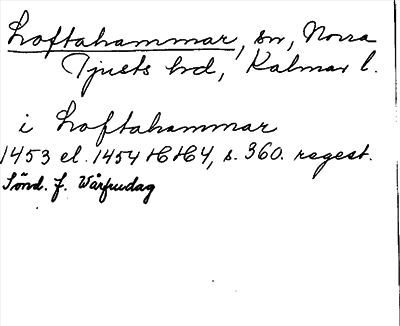 Loftahammar, sn, Norra
Tjusts hd, Kalmar l.
i Loftahammar
1453 el. 1454 HH4, s. 360. regest.
Sönd. f. Vårfrudag